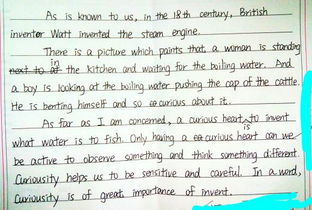 As is known to us, in the 18th century, British
inventor Watt invented the steam engine.
There is a picture which paints that a woman is standing
next to at in the kitchen and waiting for the boiling water. And
a boy is looking at the boiling water pushing the cap of the cattle.
He is benting himself and so curious about it.
As far as I am concerned, a curious heart to invent
is
what water is to fish. Only having a curious heart can we
be active to observe something and think something different.
Curiousity helps us to be sensitive and careful. In a word,
Curiousity is of great importance of invent.